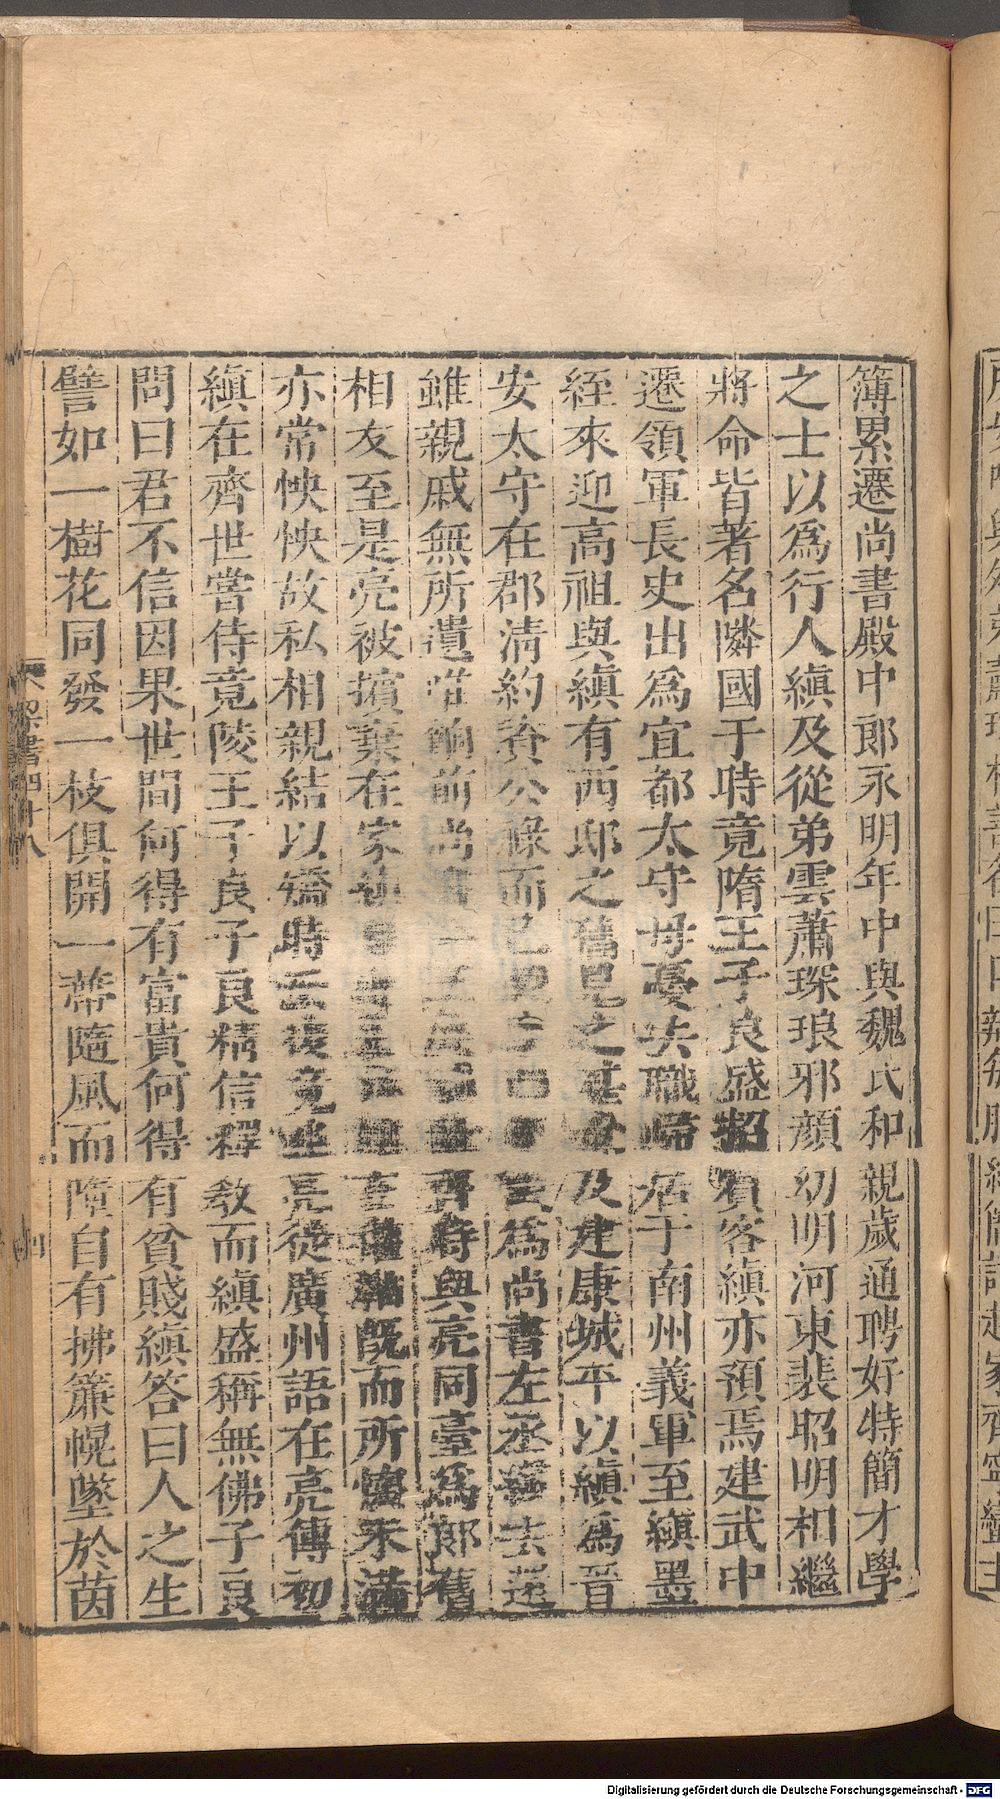 簿累遷尚書殿中郎永明年中與魏氏和親歲通聘好特簡才學
之士以爲行人縝及從弟雲蕭琛琅邪顔幼明河東裴昭明相繼
將命皆著名隣國于時竟陵王子良盛招賓客縝亦預焉建武中
遷領軍長史出爲宜都太守母憂去職歸居于南州義軍至縝墨
絰來迎高祖與縝有西邸之舊見之甚悅及建康城平以縝爲晉
安太守在郡清約資公祿而已 爲尚書左丞縝去還
雖親戚無所遺唯餉前尚書 齊時與亮同臺爲郎舊
相友至是亮被擯棄在家 旣而所懷未滿
亦常怏怏故私相親結以矯時云後竟坐亮從廣州語在亮傳初
縝在齊世嘗侍竟陵王子良子良精信釋敎而縝盛稱無佛子良
問曰君不信因果世間何得有富貴何得有貧賤縝答曰人之生
譬如一樹花同發一枝俱開一蔕隨風而墮自有拂簾幌墜於茵
梁書四十八
四
Digitalisierung gefördert durch die Deutsche Forschungsgemeinschaft - DFG